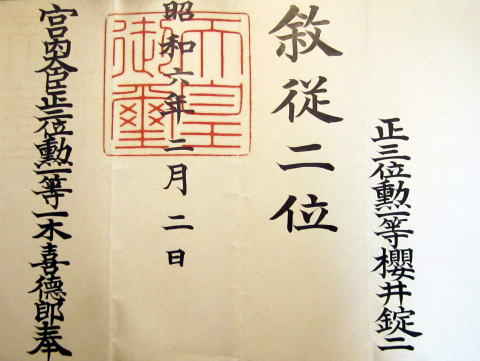 正三位勲一等櫻井錠二
敘従二位
昭和六年二月二日
天皇御璽
宮内大臣正三位勲一等一木喜德郎奉